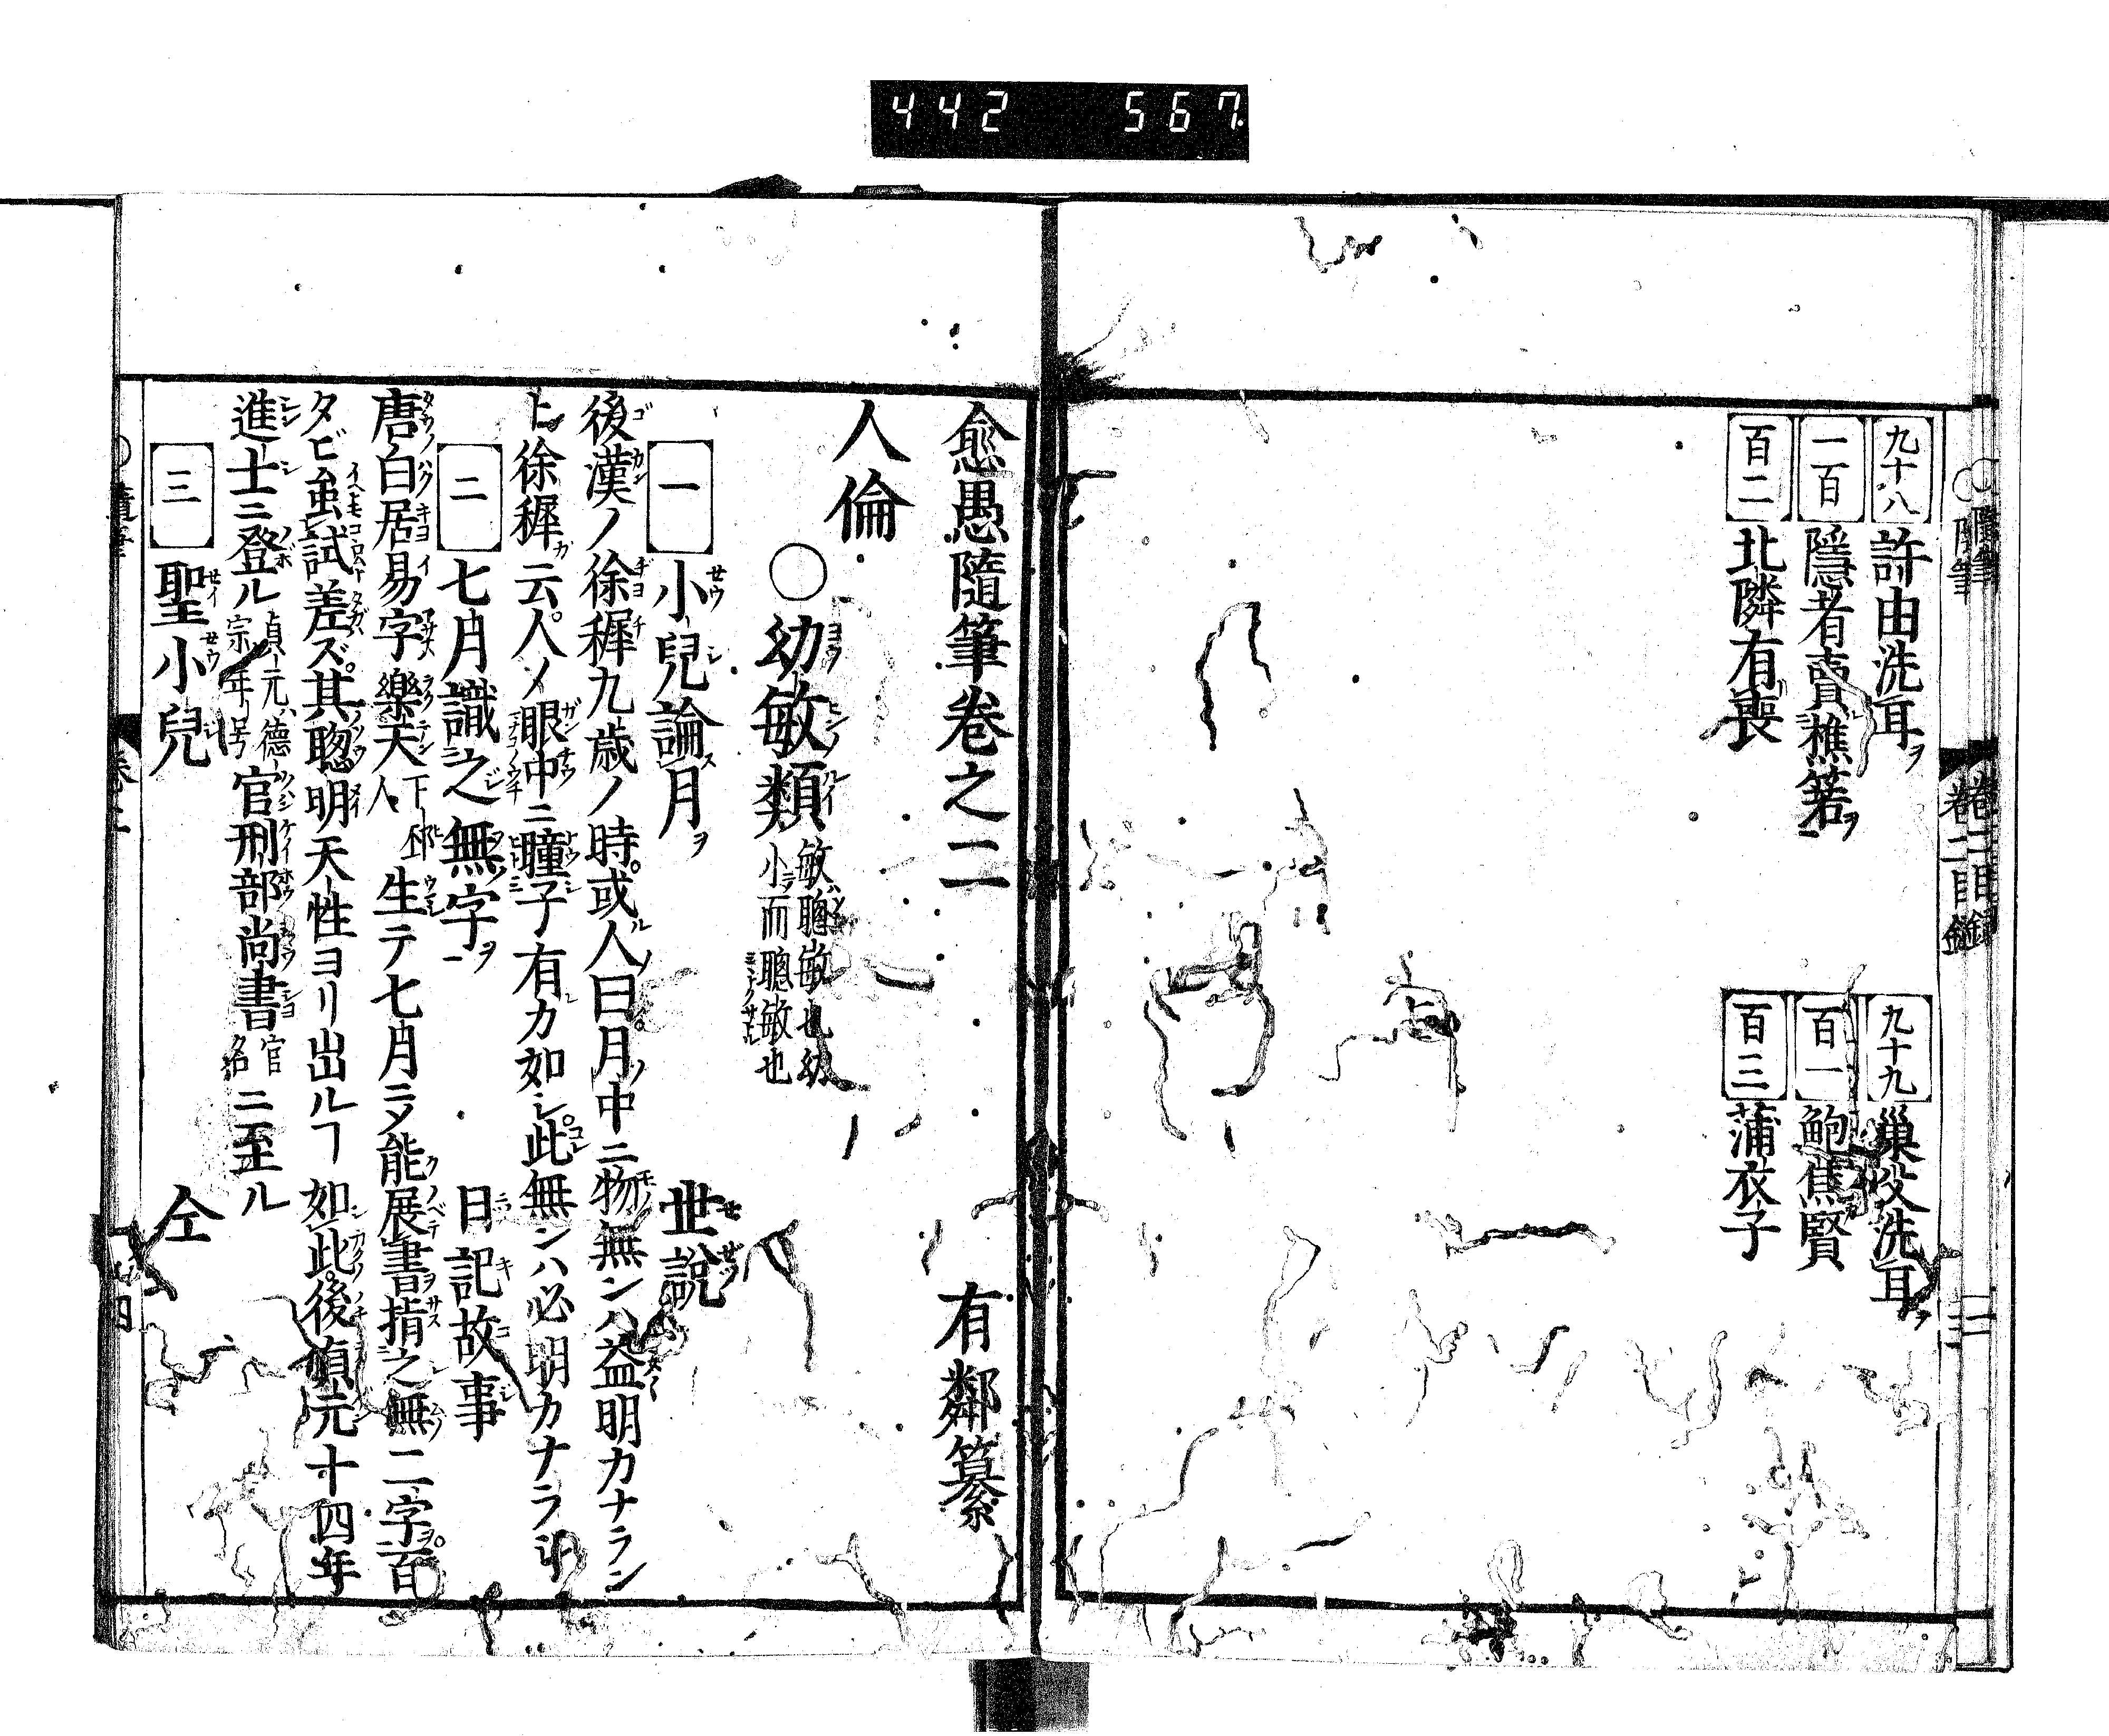 442 567
九十八 許由洗耳ヲ
九十九 巢父洗耳ヲ
一百 隱者有賣樵箬ヲ
百一 鮑焦賢
百二 北隣有喪
百三 蒲衣子
隨筆 卷二目録 三
愈愚隨筆卷之二 有鄰纂
人倫
○幼敏類 敏聰敏也幼
小而聰敏也
一 小兒論月ヲ 世説
後漢ノ徐穉九歳ノ時或人曰月中ニ物無ンハ益明カナラン
ト徐穉云人ノ眼中ニ瞳子有カ如シ此無ンハ必明カナラジ
二 七月識之無字ヲ 日記故事
唐白居易字樂天下邽人生テ七月ニメ能展書指之無二字ヲ百
タビ試差ズ其聰明天性ヨリ出ルヿ如此後貞元十四年
進士ニ登ル貞元ハ德宗年号官刑部尚書官名ニ至ル
三 聖小兒 仝